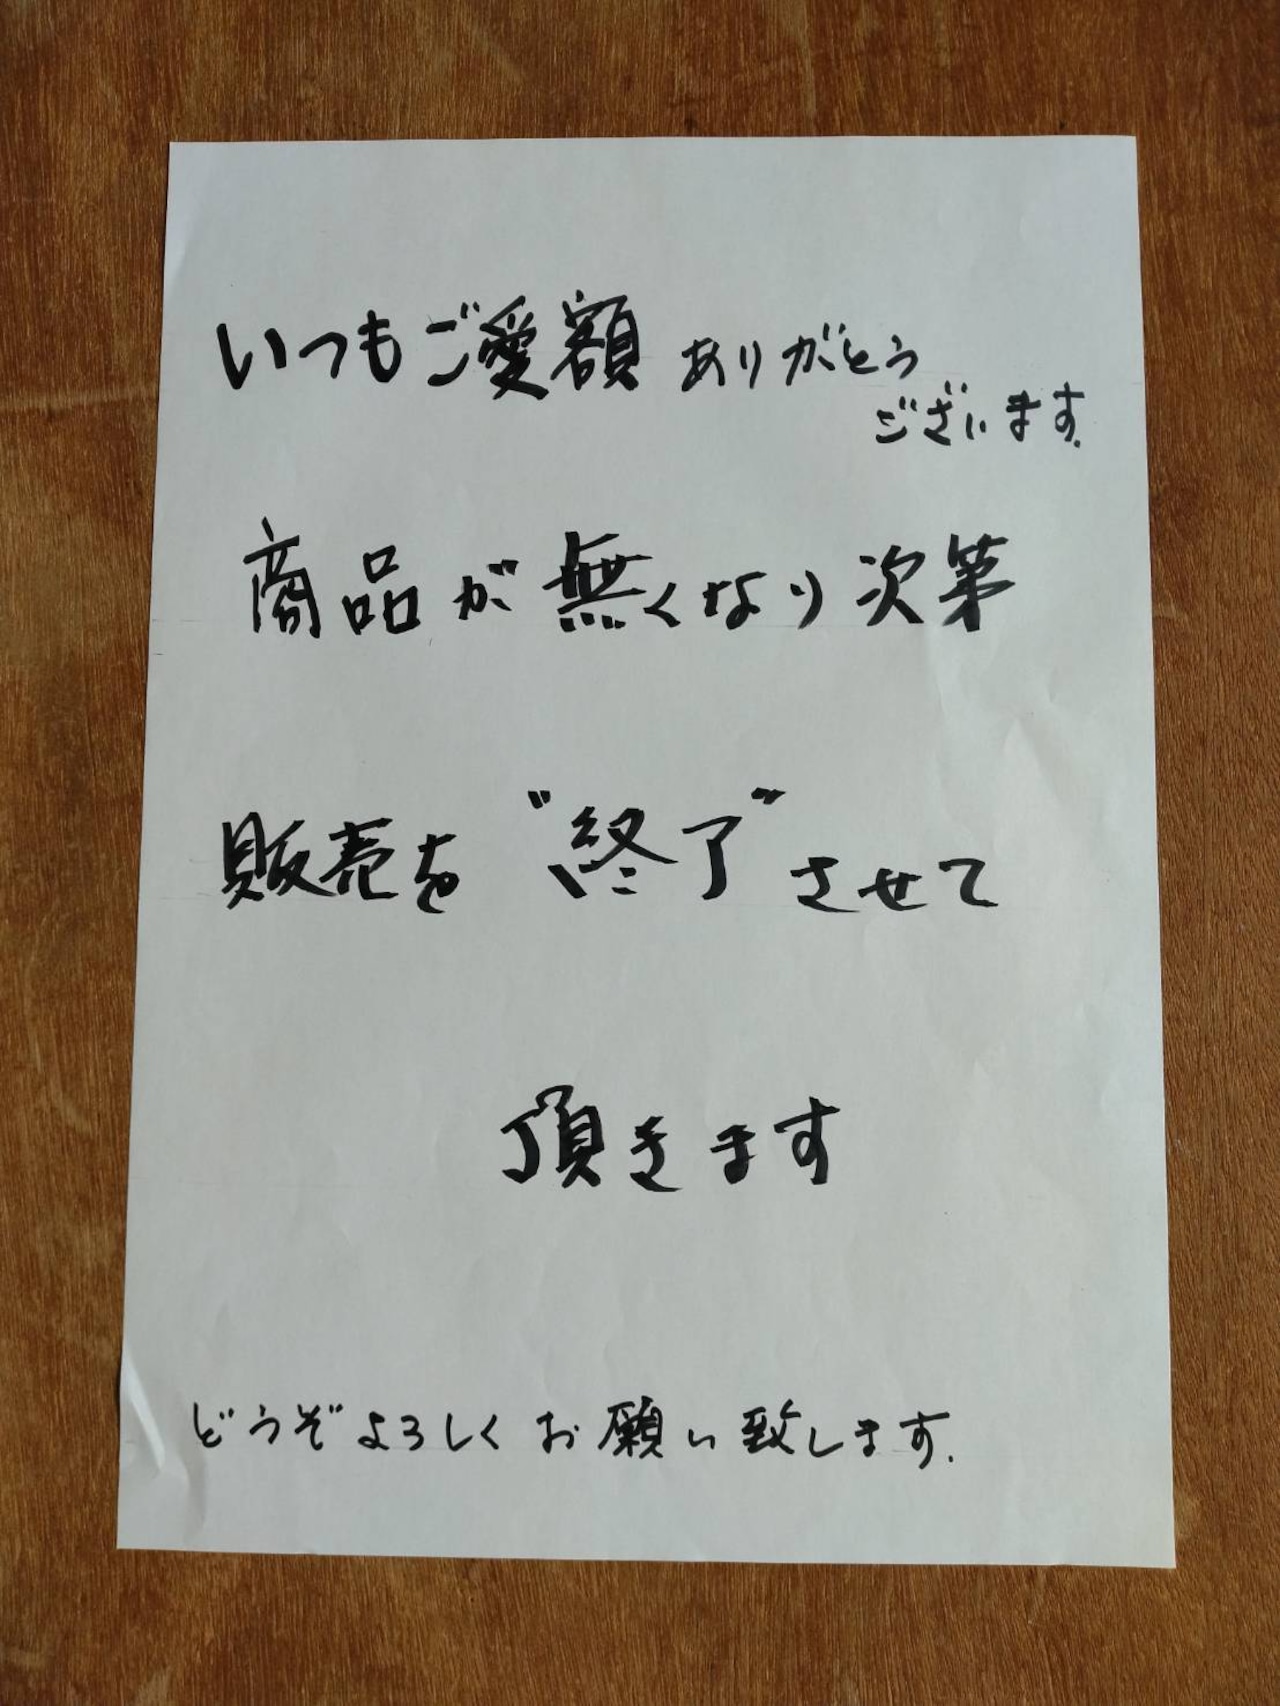 いつもご愛額ありがとう
ございます.
商品が無くなり次第
販売を"終了"させて
頂きます
どうぞよろしくお願い致します.